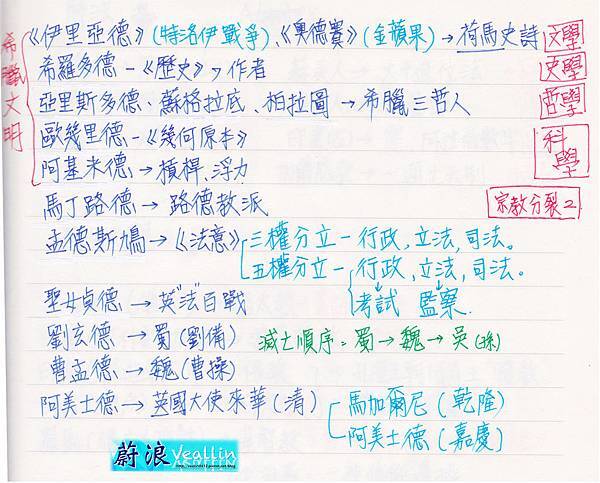 希臘文明
《伊里亞德》(特洛伊戰爭)、《奧德賽》(金蘋果)→荷馬史詩 文學
希羅多德-《歷史》,作者 史學
亞里斯多德、蘇格拉底、柏拉圖→希臘三哲人 哲學
歐幾里德-《幾何原本》 科學
阿基米德→槓桿、浮力
馬丁路德→路德教派 宗教分裂2
孟德斯鳩→《法意》 三權分立-行政,立法,司法。
五權分立-行政,立法,司法。
考試 監察
聖女貞德→英"法"百戰
劉玄德→蜀(劉備) 滅亡順序:蜀→魏→吳(孫)
曹孟德→魏(曹操)
阿美士德→英國大使來華(清) 馬加爾尼(乾隆)
阿美士德(嘉慶)
蔚浪 Veallin